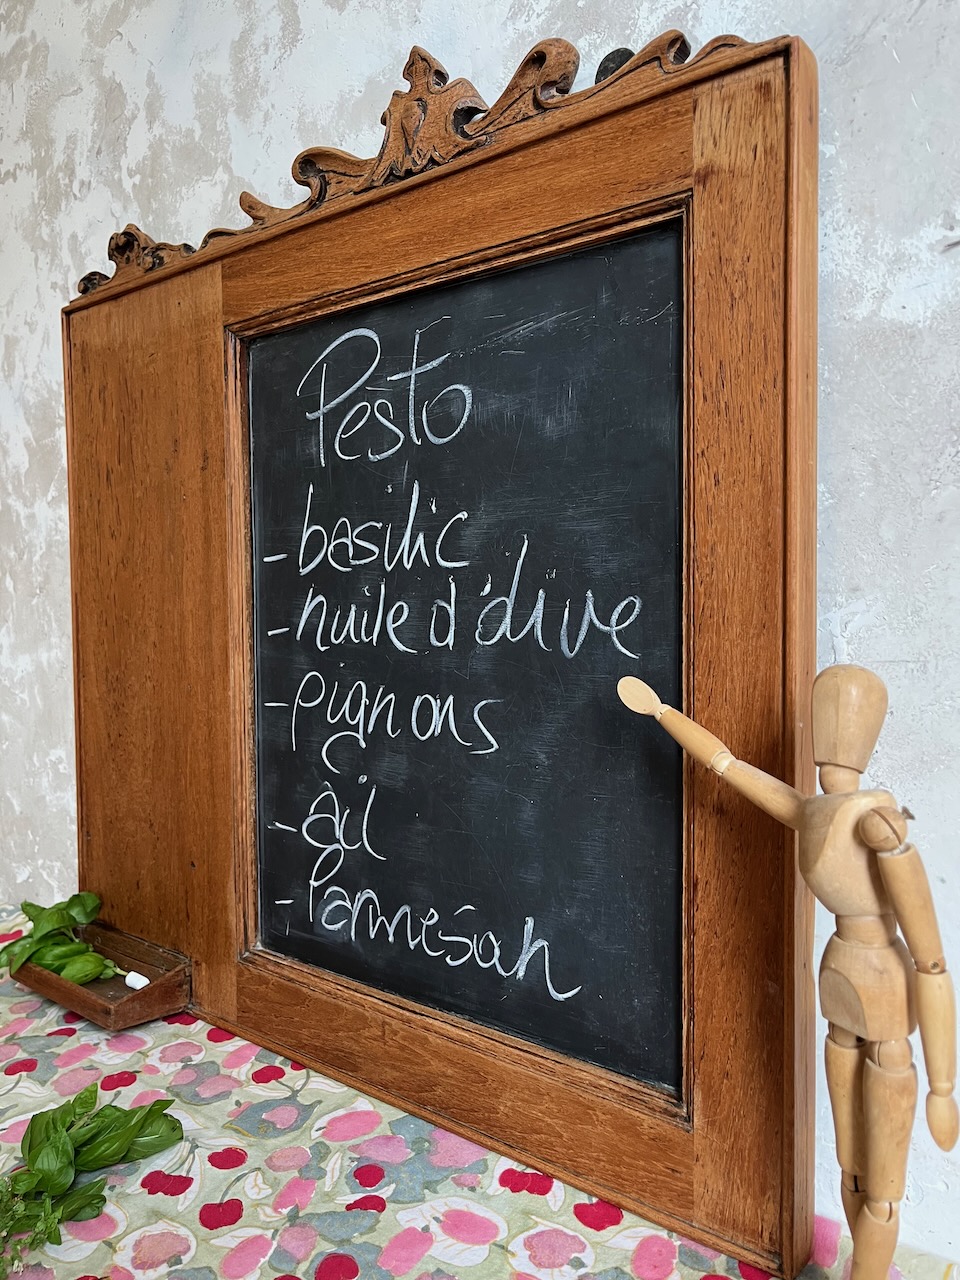 Pesto
- basilic
- huile d'olive
- pignons
- ail
- Parmesan